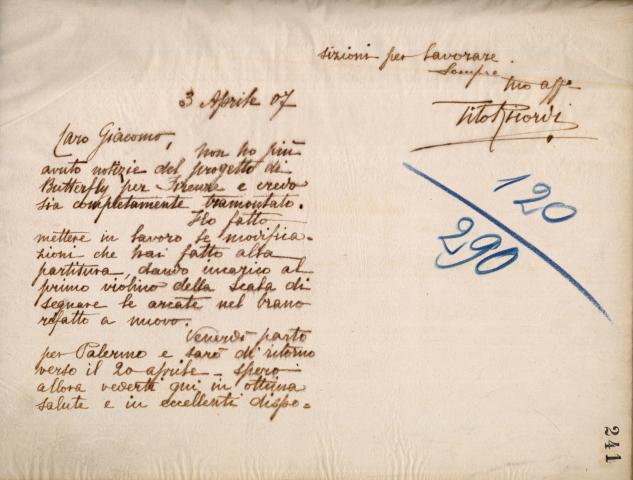 3 Aprile 07
Caro Giacomo,
non ho più
avuto notizie del progetto di
Butterfly per Firenze e credo
sia completamente tramontato.
Ho fatto
mettere in lavoro le modifica=
zioni che hai fatto alla
partitura, dando incarico al
primo violino della Scala di
segnare le arcate nel brano
rifatto a nuovo.
Venerdì parto
per Palermo e sarò di ritorno
verso il 20 aprile - spero
allora vederti qui in ottima
salute e in eccellenti dispo=
sizioni per lavorare.
Sempre
tuo affe
Tito Ricordi
120
290
241